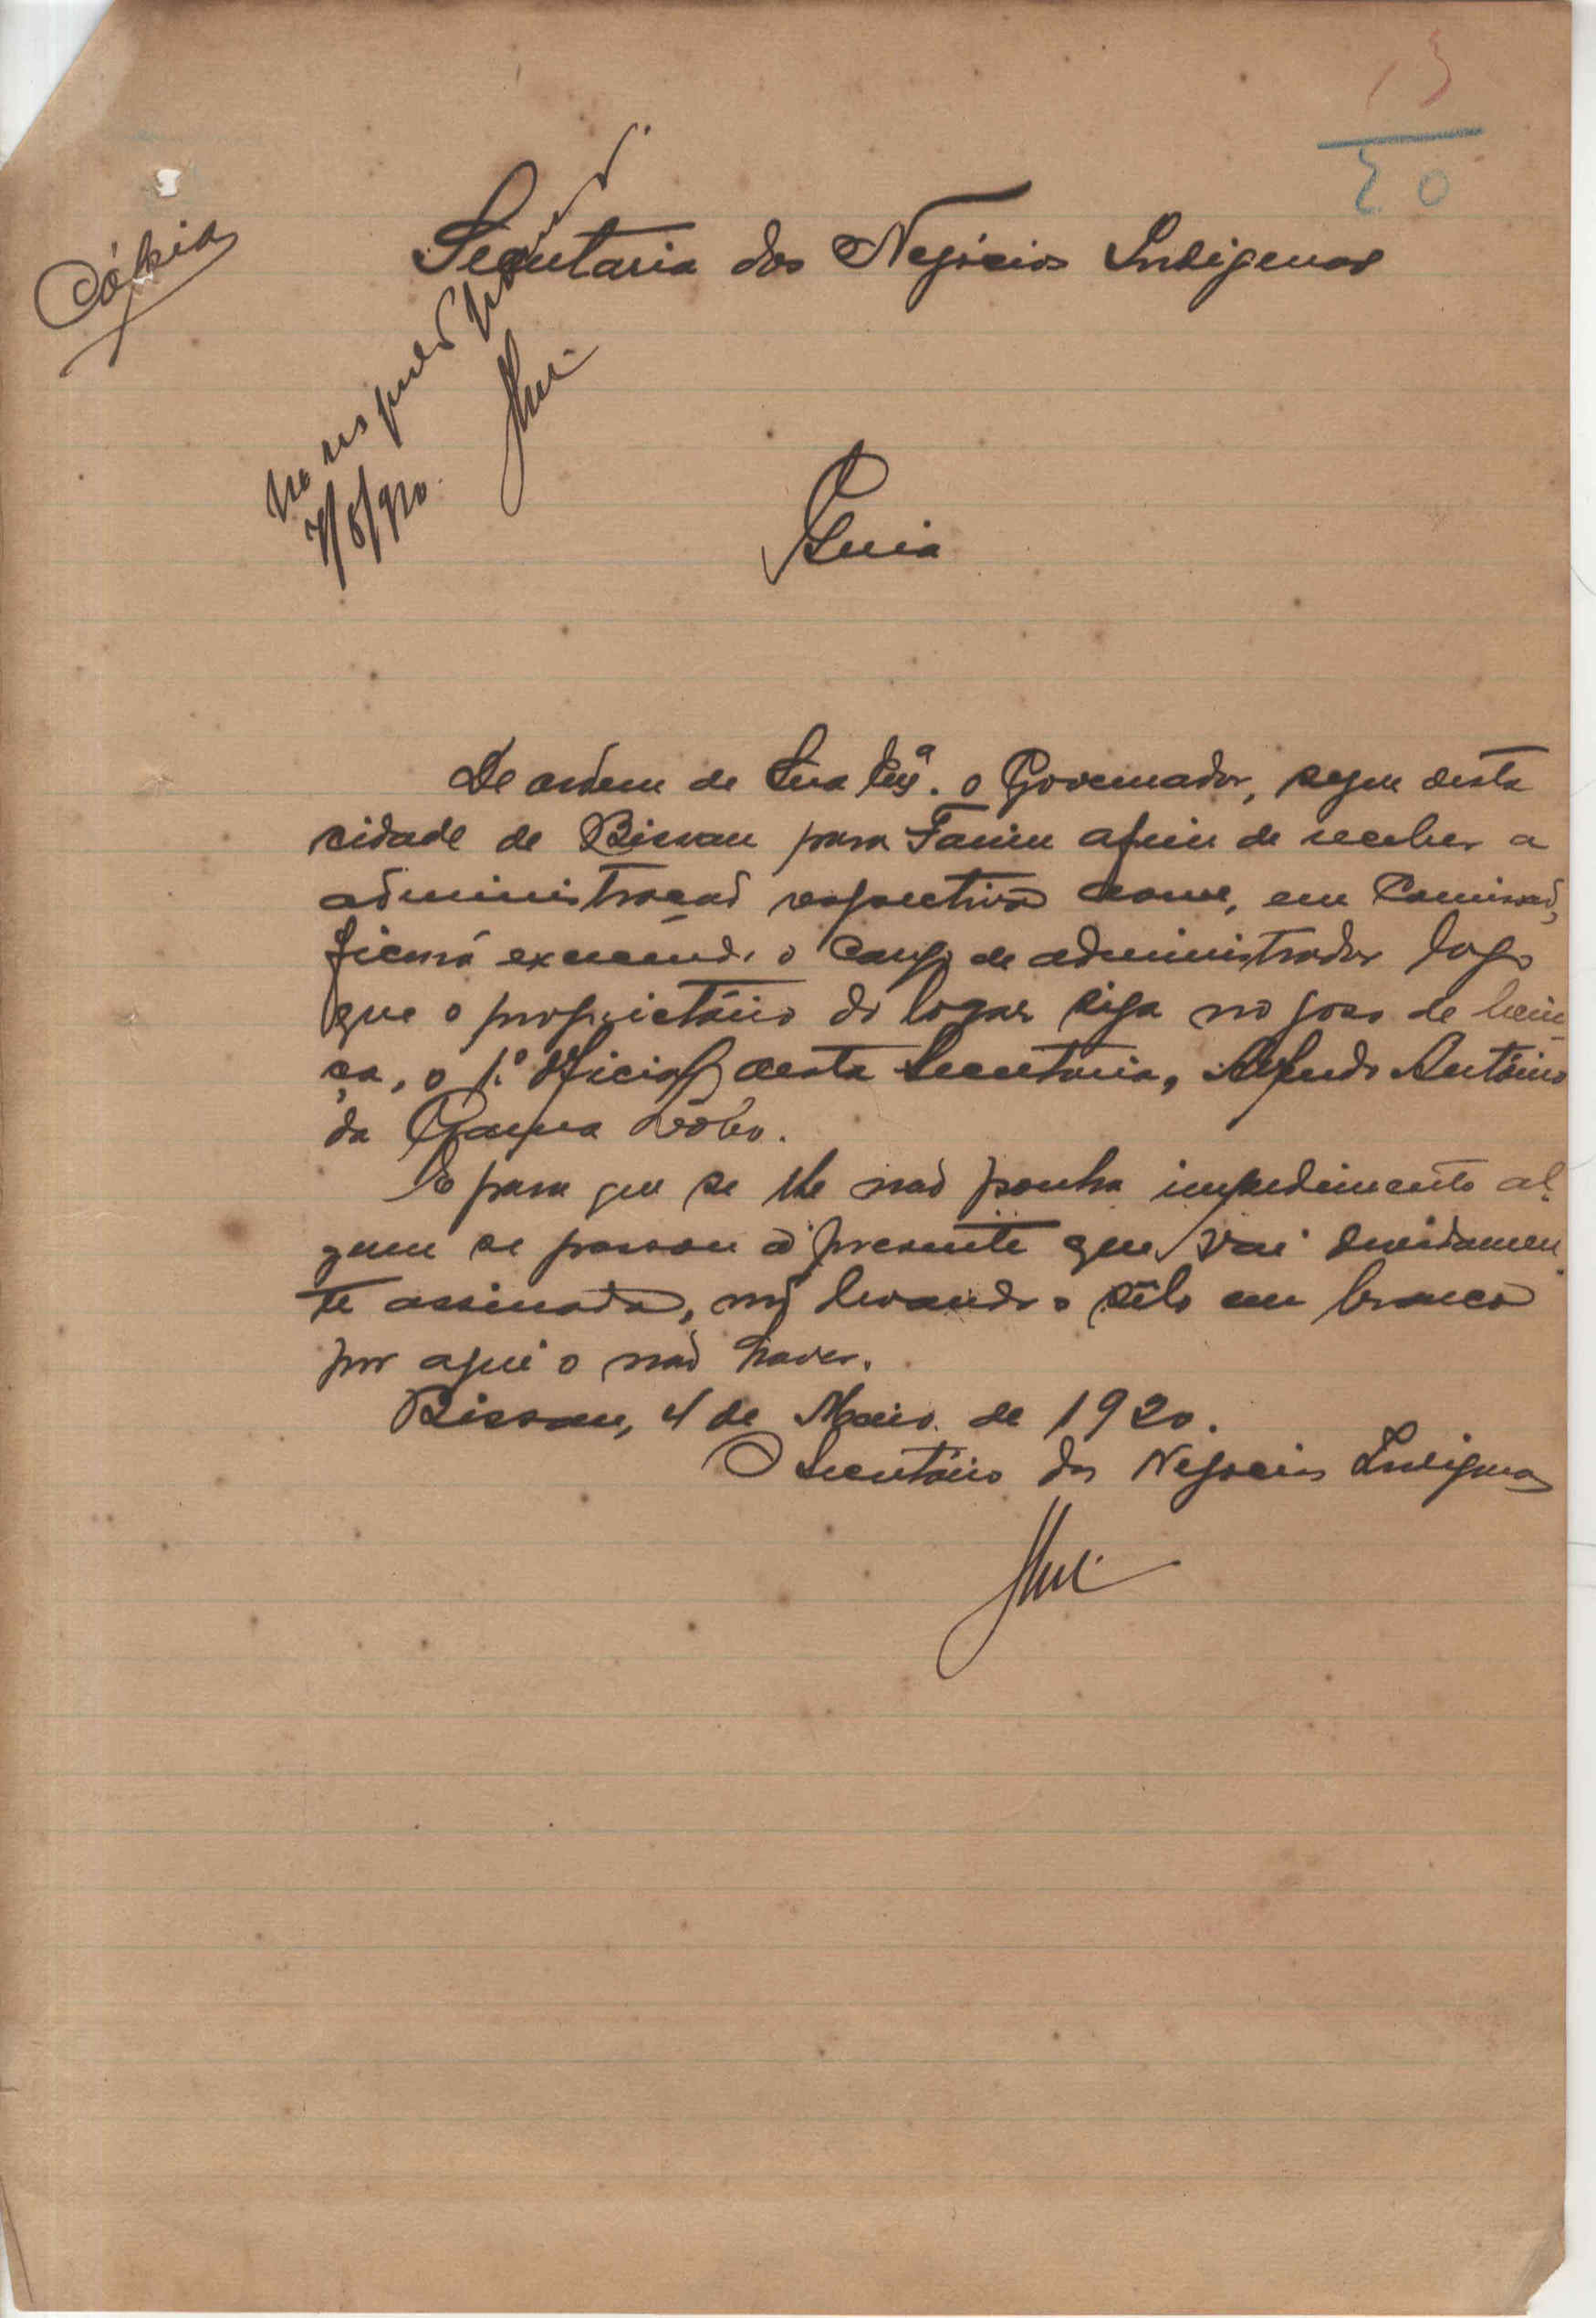 13
20
Cópia
Secretaria dos Negócios Indigenas
7/5/920.
Guia
De ordem de Sua Exª. o Governador, segue desta
cidade de Bissau para Farim afim de receber a
administração respectiva como, em Comissão,
ficará exercendo o cargo de administrador logo
que o proprietário do logar siga no goso de licen
ça, o 1.º Oficial desta Secretaria, Alfredo António
da Gama Lobo.
E para que se lhe não ponha impedimento al-
gum se passou a presente que vai devidamen
te assinada, não levando o sêlo em branco
por aqui o não haver.
Bissau, 4 de Maio de 1920.
O Secretário dos Negocios Indigenas